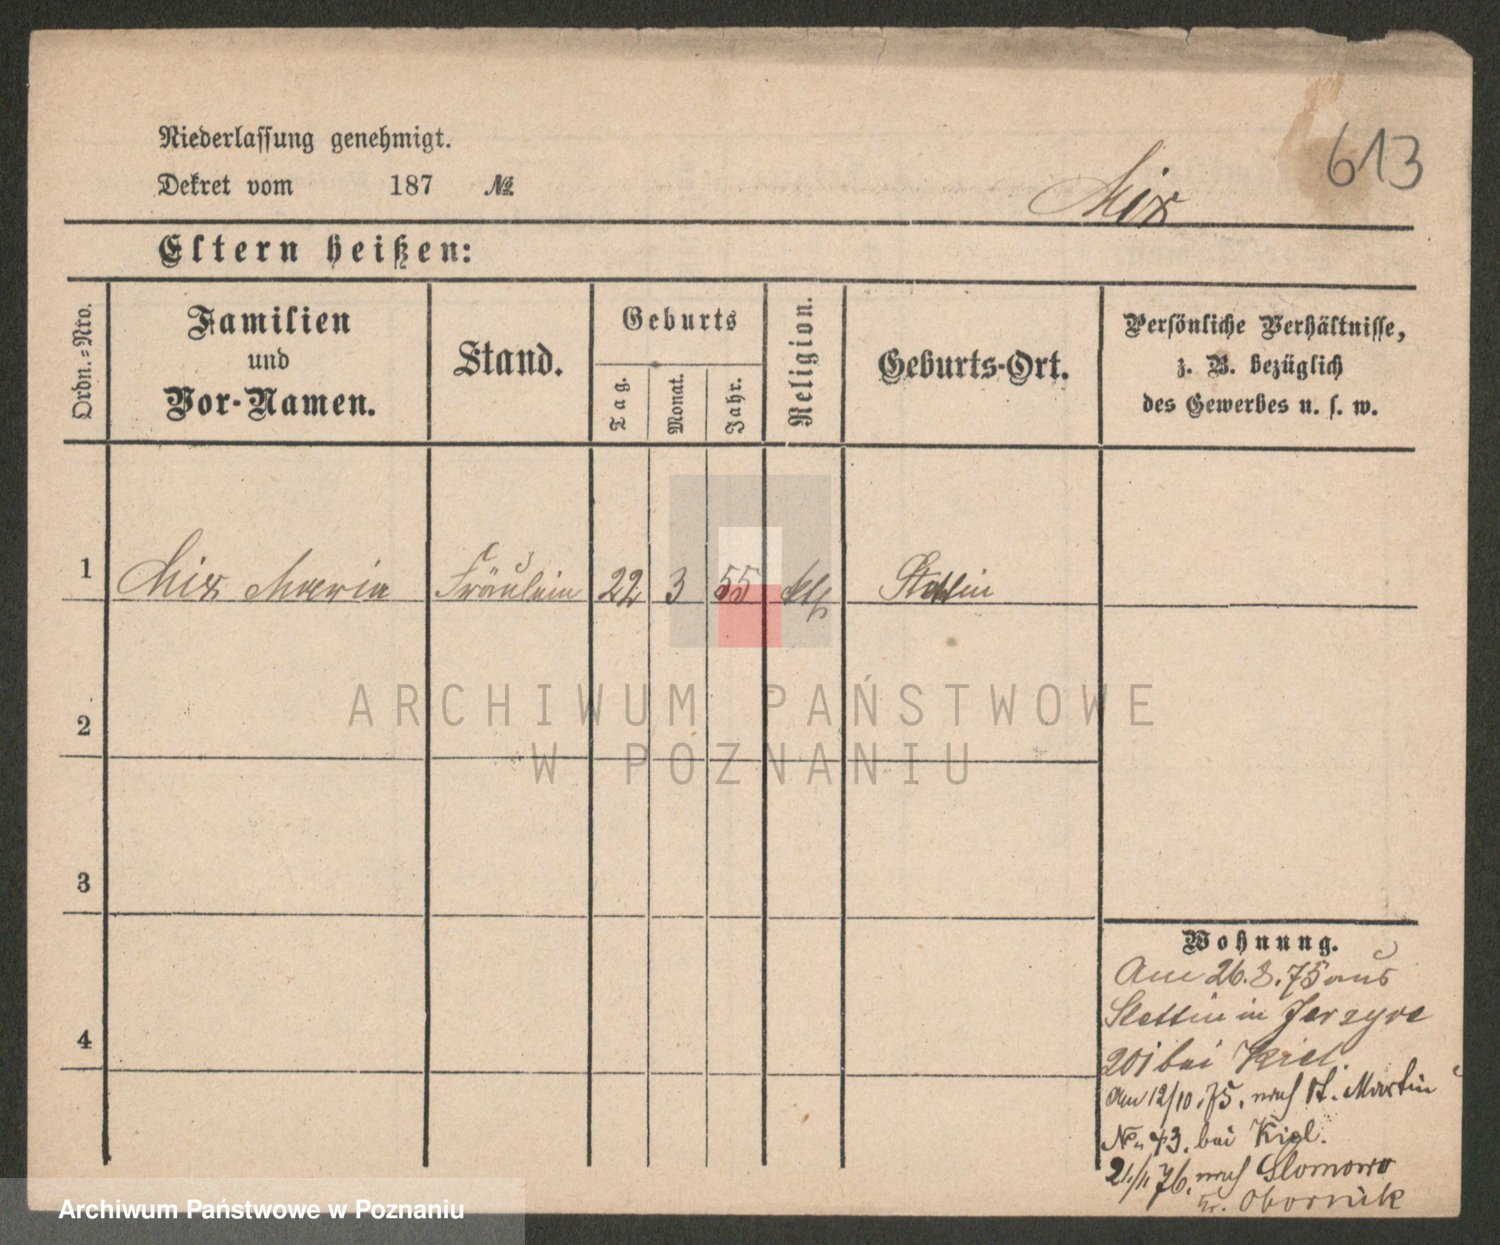 Niederlassung genehmigt.
Dekret vom 187 №
Mix
613
Eltern heißen:
Ordn.=Nro.
Familien
und
Vor-Namen.
Stand.
Geburts
Tag.
Monat.
Jahr.
Religion.
Geburts-Ort.
Persönliche Verhältnisse,
z. B. bezüglich
des Gewerbes u. s. w.
1 Mix Maria Fräulein 22 3 55 kth Stettin
2
3
4
Wohnung.
Am 26.8.75 aus
Stettin in Jerzyce
201 bei Kiel.
Am 12/10.75. nach St. Martin
No. 43. bei Kigl.
21/11 76. nach Slomowo
Kr. Obornik
ARCHIWUM PAŃSTWOWE
W POZNANIU
Archiwum Państwowe w Poznaniu